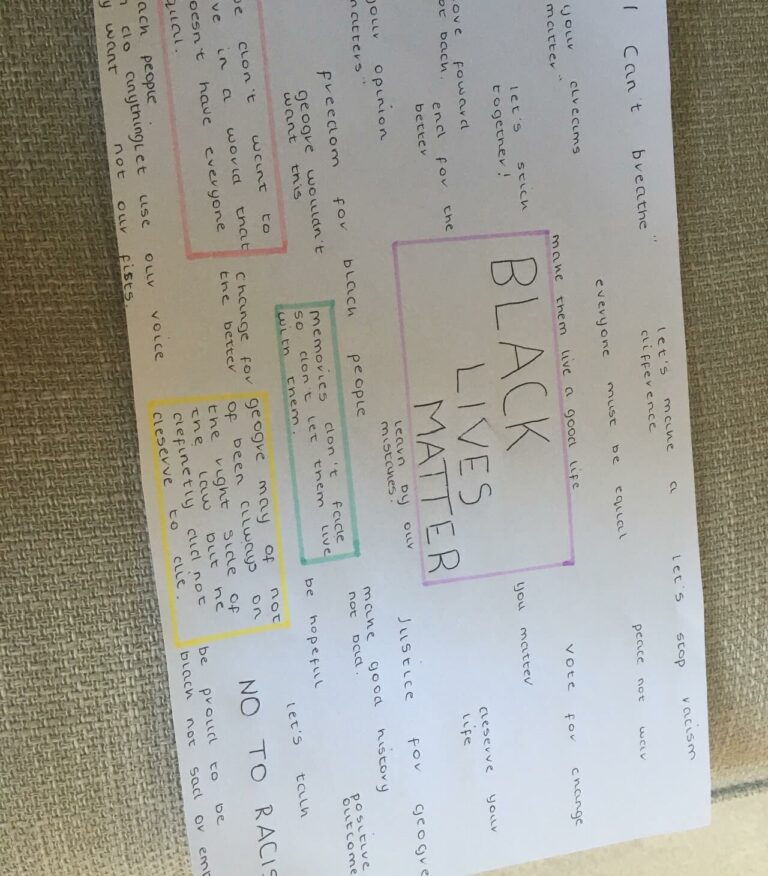 I can't breathe"
let's make a
difference
let's stop racism
peace not war
your dreams
matter"
everyone must be equal
make them live a good life
vote for change
let's stick
together!
BLACK
LIVES
MATTER
you matter
deserve your
life
ove foward
ot back. end for the
better
your opinion
matters"
learn by our
mistakes!
Justice for geogre
freedom for black people
geogre wouldn't
want this
memories don't fade
so don't let them live
with them.
make good history
not bad.
positive
outcome
be hopeful
let's talk
e don't want to
ve in a world that
oesn't have everyone
qual.
change for
the better
geogre may of not
of been always on
the right side of
the law but he
definetly did not
deserve to die.
NO TO RACIS
ach people
n do anything
y want
let use our voice
not our fists.
be proud to be
black not sad or em